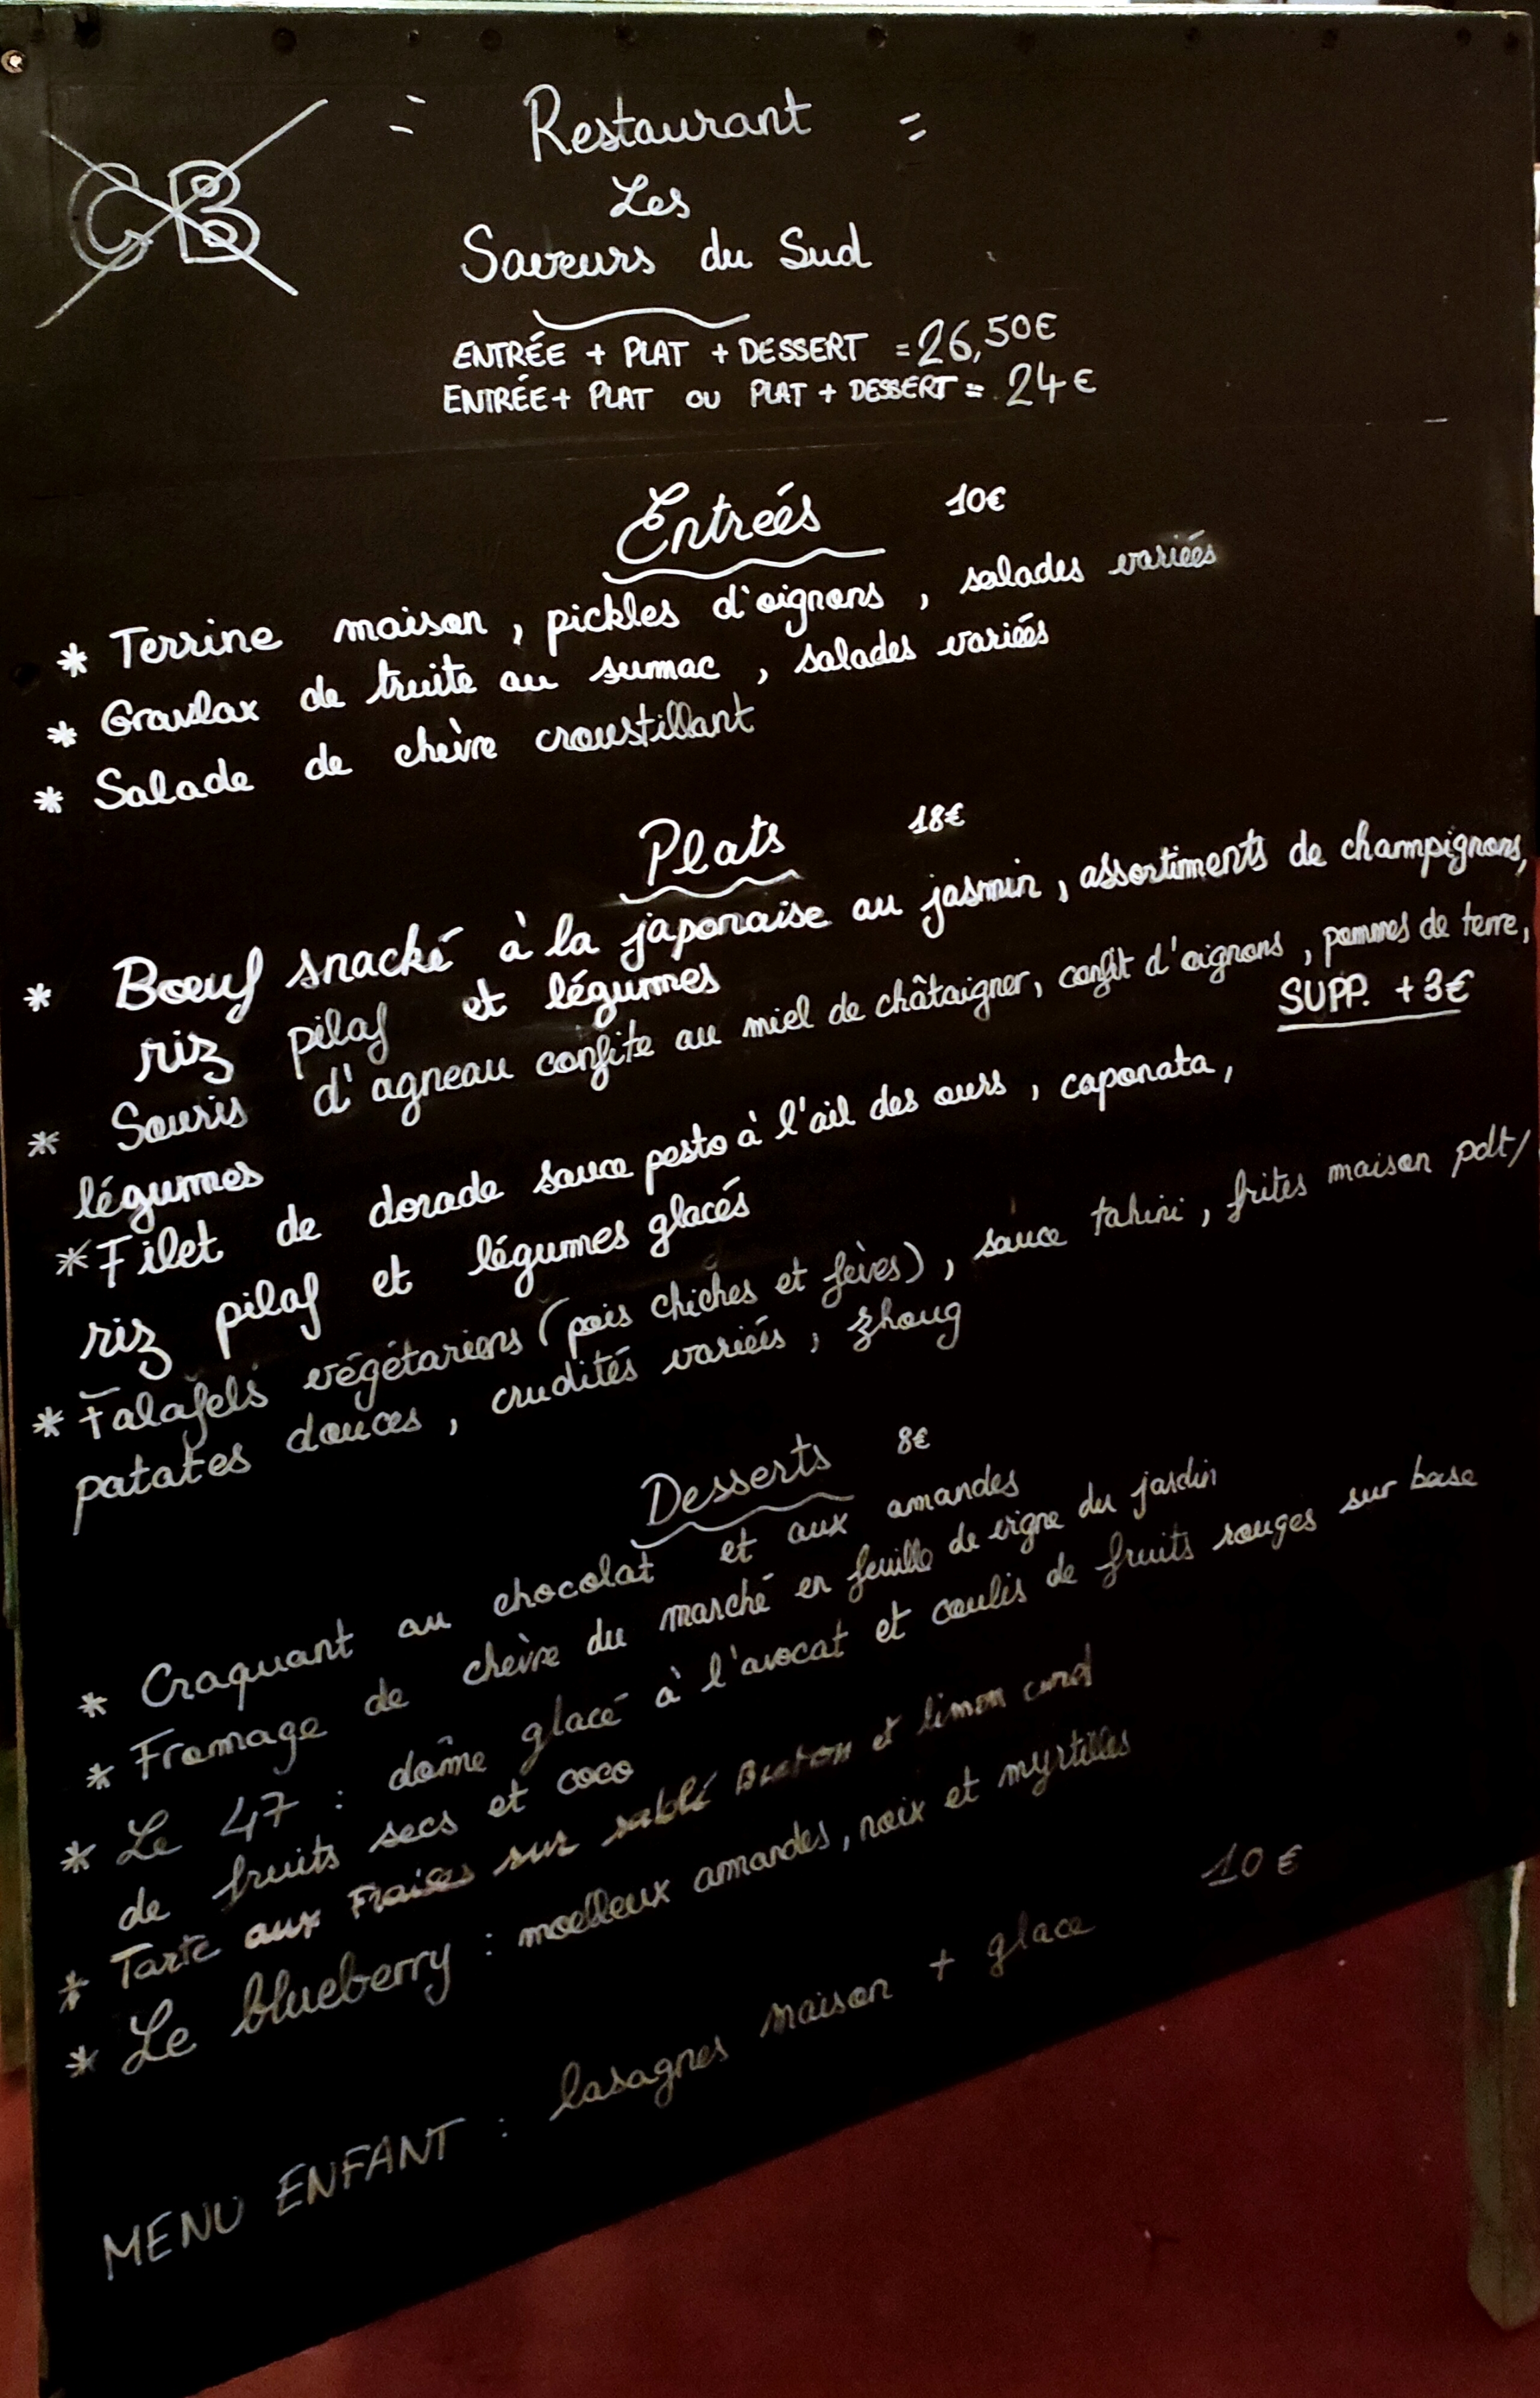 CB
= Restaurant =
Les
Saveurs du Sud
ENTRÉE + PLAT + DESSERT = 26,50€
ENTRÉE + PLAT OU PLAT + DESSERT = 24€
Entreés 10€
* Terrine maison, pickles d'oignons, salades varieés
* Gravlax de truite au sumac, salades varieés
* Salade de chèvre croustillant
Plats 18€
* Bœuf snacké à la japonaise au jasmin, assortiments de champignons,
riz pilaf et légumes
* Souris d'agneau confite au miel de châtaigner, confit d'oignons, pommes de terre,
légumes SUPP. +3€
* Filet de dorade sauce pesto à l'ail des ours, caponata,
riz pilaf et légumes glacés
* Falafels végétariens (pois chiches et fèves), sauce tahini, frites maison pdt/
patates douces, crudités varieés, zhoug
Desserts 8€
* Craquant au chocolat et aux amandes
* Fromage de chèvre du marché en feuille de vigne du jardin
* Le 47 : dôme glacé à l'avocat et coulis de fruits rouges sur base
de fruits secs et coco
* Tarte aux Fraises sur sablé Breton et limon curd
* Le blueberry : moelleux amandes, noix et myrtilles
MENU ENFANT : lasagnes maison + glace 10€